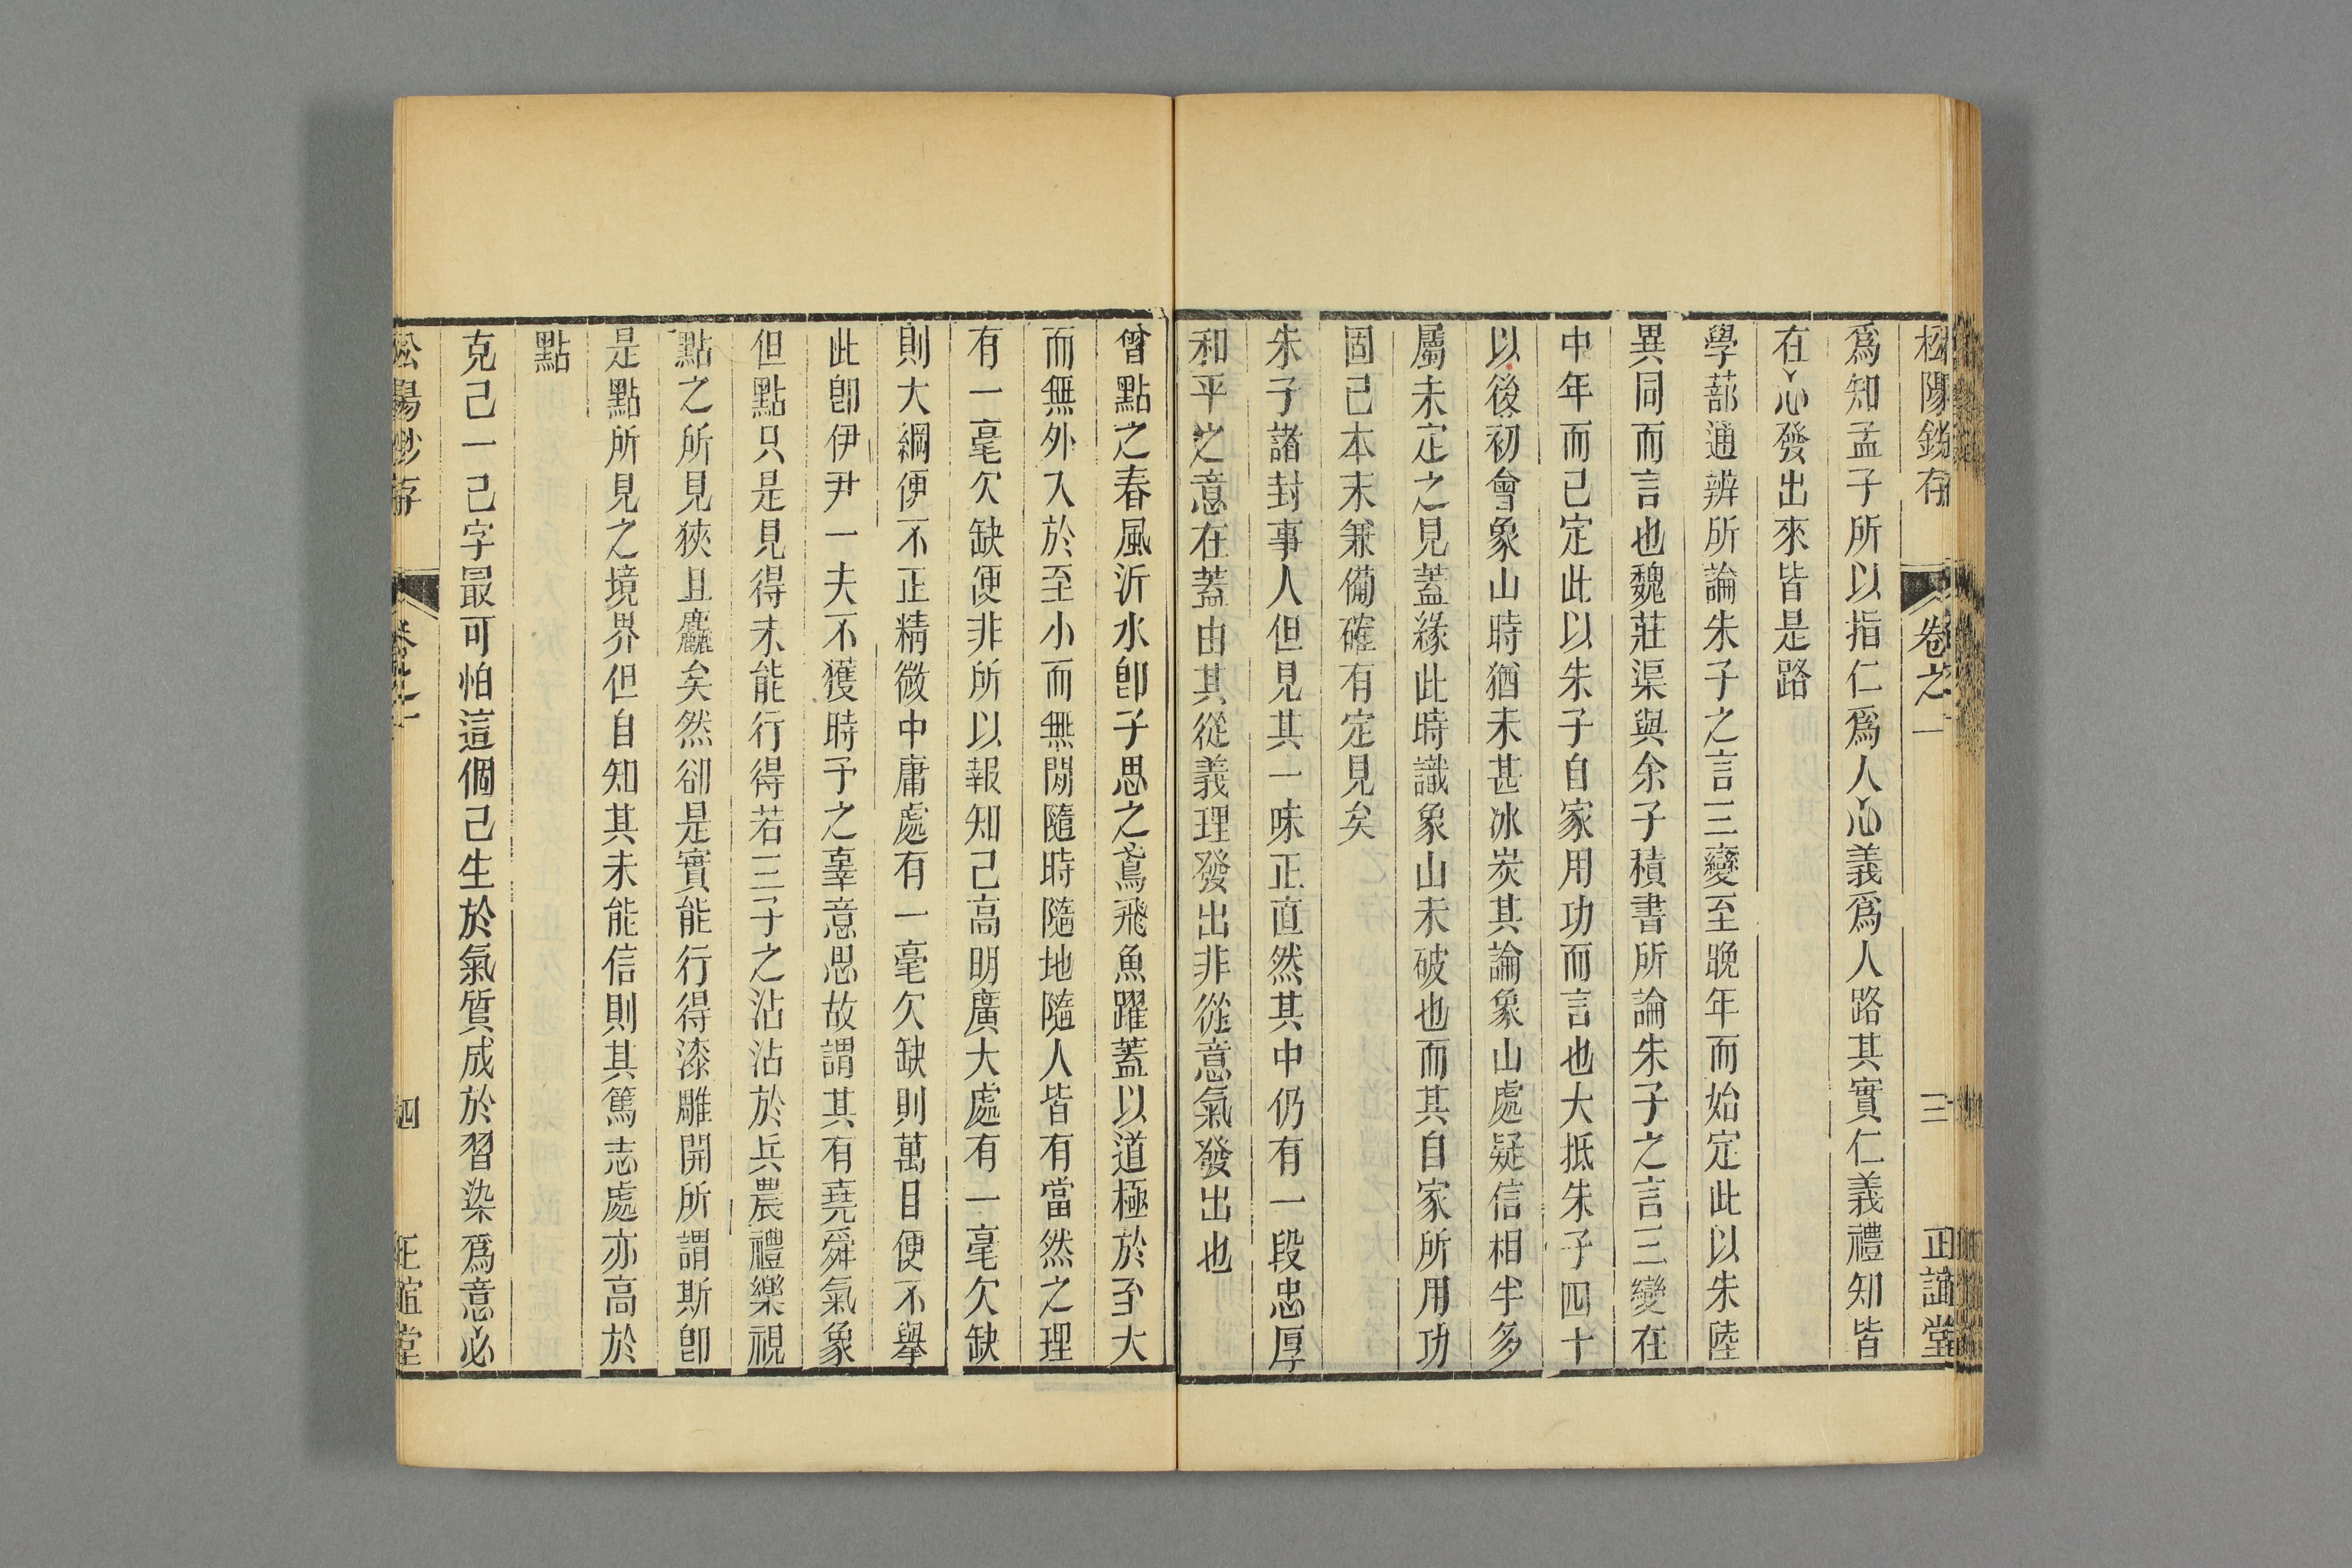 松陽鈔存　卷之一　三　正誼堂
爲知孟子所以指仁爲人心義爲人路其實仁義禮知皆
在心發出來皆是路
學蔀通辨所論朱子之言三變至晚年而始定此以朱陸
異同而言也魏莊渠與余子積書所論朱子之言三變在
中年而已定此以朱子自家用功而言也大抵朱子四十
以後初會象山時猶未甚冰炭其論象山處疑信相半多
屬未定之見蓋緣此時識象山未破也而其自家所用功
固已本末兼備確有定見矣
朱子諸封事人但見其一味正直然其中仍有一段忠厚
和平之意在蓋由其從義理發出非從意氣發出也
曾點之春風沂水卽子思之鳶飛魚躍蓋以道極於至大
而無外入於至小而無閒隨時隨地隨人皆有當然之理
有一毫欠缺便非所以報知己高明廣大處有一毫欠缺
則大綱便不正精微中庸處有一毫欠缺則萬目便不舉
此卽伊尹一夫不獲時予之辜意思故謂其有堯舜氣象
但點只是見得未能行得若三子之沾沾於兵農禮樂視
點之所見狹且麤矣然卻是實能行得漆雕開所謂斯卽
是點所見之境界但自知其未能信則其篤志處亦高於
點
克己一己字最可怕這個己生於氣質成於習染爲意必
松陽鈔存　卷之一　四　正誼堂